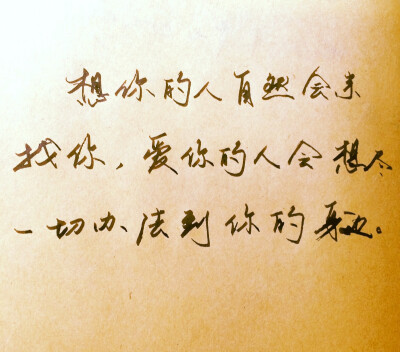 想你的人自然会来
找你，爱你的人会想尽
一切办法到你的身边。